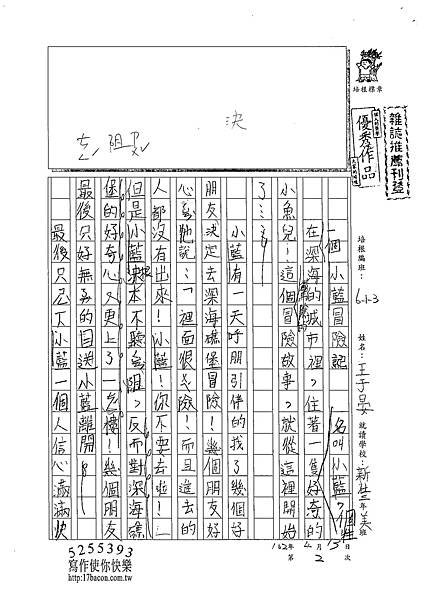 決
勸 阻
培根標章
雜誌推薦刊登
優秀作品
培根編班：6-1-3
姓名：王子晏
就讀學校：新生
年美班
102年4月15日
第2次
小藍冒險記
在深海的城市裡，住著一隻好奇的
一個名叫小藍，個性
小魚兒！這個冒險故事，就從這裡開始
了……！
小藍有一天呼朋引伴的找了幾個好
朋友決定去深海礁堡冒險！幾個朋友好
心勸他說：「裡面很危險！而且進去的
人都沒有出來！小藍！你不要去啦！」
但是小藍根本不聽勸阻，反而對深海礁
堡的好奇心又更上了一層樓！幾個朋友
最後只好無奈的目送小藍離開！
最後只忍下小藍一個人信心滿滿決
5255393
寫作使你快樂
http://17bacon.com.tw/